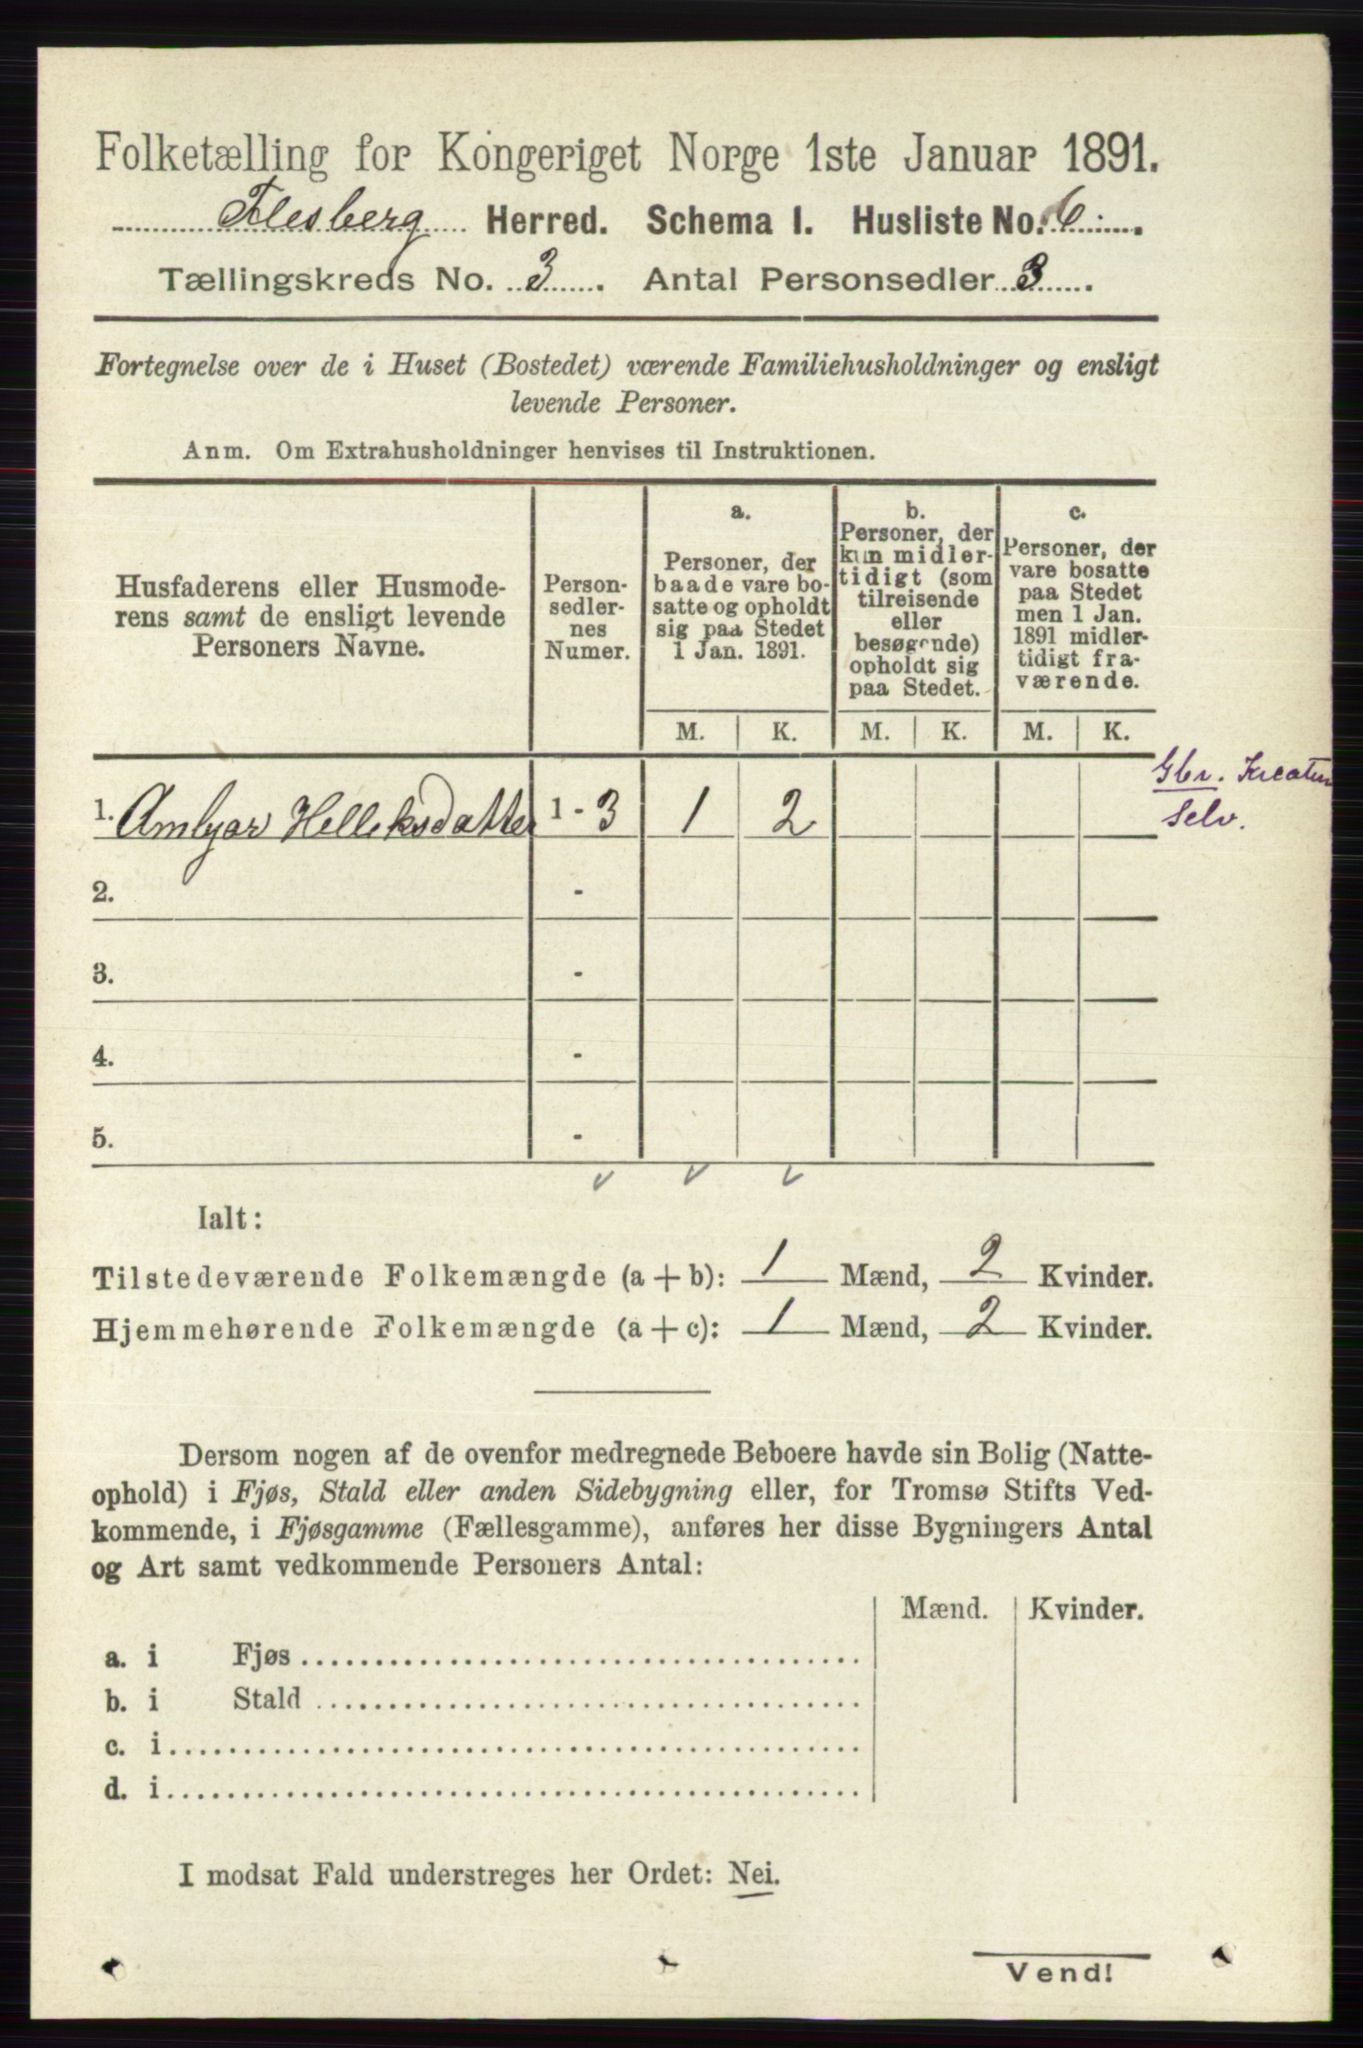 Folketælling for Kongeriget Norge 1ste Januar 1891.
Flesberg Herred. Schema I. Husliste No. 6.
Tællingskreds No. 3. Antal Personsedler 3.
Fortegnelse over de i Huset (Bostedet) værende Familiehusholdninger og ensligt
levende Personer.
Anm. Om Extrahusholdninger henvises til Instruktionen.
Husfaderens eller Husmode-
rens samt de ensligt levende
Personers Navne.
Person-
sedler-
nes
Numer.
a.
Personer, der
baade vare bo-
satte og opholdt
sig paa Stedet
1 Jan. 1891.
b.
Personer, der
kun midler-
tidigt (som
tilreisende
eller
besøgende)
opholdt sig
paa Stedet.
c.
Personer, der
vare bosatte
paa Stedet
men 1 Jan.
1891 midler-
tidigt fra-
værende.
M. K. M. K. M. K.
1. Helleksdatter 1 - 3 1 2
Gbr. Kreatur
Selv.
2. -
3. -
4. -
5. -
Ialt:
Tilstedeværende Folkemængde (a + b): 1 Mænd, 2 Kvinder.
Hjemmehørende Folkemængde (a + c): 1 Mænd, 2 Kvinder.
Dersom nogen af de ovenfor medregnede Beboere havde sin Bolig (Natte-
ophold) i Fjøs, Stald eller anden Sidebygning eller, for Tromsø Stifts Ved-
kommende, i Fjøsgamme (Fællesgamme), anføres her disse Bygningers Antal
og Art samt vedkommende Personers Antal:
Mænd. Kvinder.
a. i Fjøs
b. i Stald
c. i
d. i
I modsat Fald understreges her Ordet: Nei.
Vend!